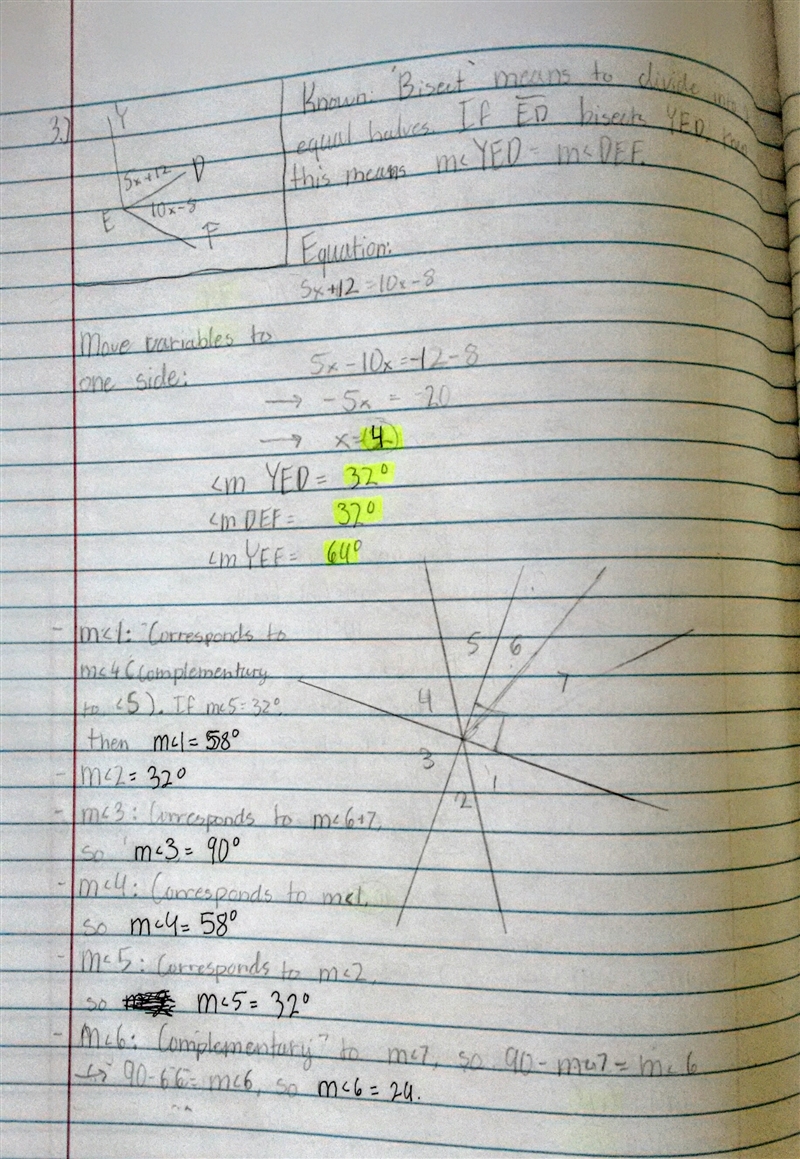 3.)
Y
5x+12 D
E 10x-8
F
Known: "Bisect" means to divide
equal halves. If ED bisects YED,
this means m<YED = m<DEF.
Equation:
5x+12 = 10x-8
Move variables to
one side:
5x - 10x = -12 - 8
→ -5x = -20
→ x = (4)
<m YED = 32°
<m DEF = 32°
<m YEF = 64°
- m<1: Corresponds to
m<4 (Complementary
to <5). If m<5 = 32°,
then m<1 = 58°
- m<2 = 32°
- m<3: Corresponds to m<6+7,
so m<3 = 90°
- m<4: Corresponds to m<1,
so m<4 = 58°
- m<5: Corresponds to m<2,
so m<5 = 32°
- m<6: Complementary? to m<7, so 90 - m<7 = m<6
↳ 90-66 = m<6, so m<6 = 24.
5 6
4 7
3
2 1